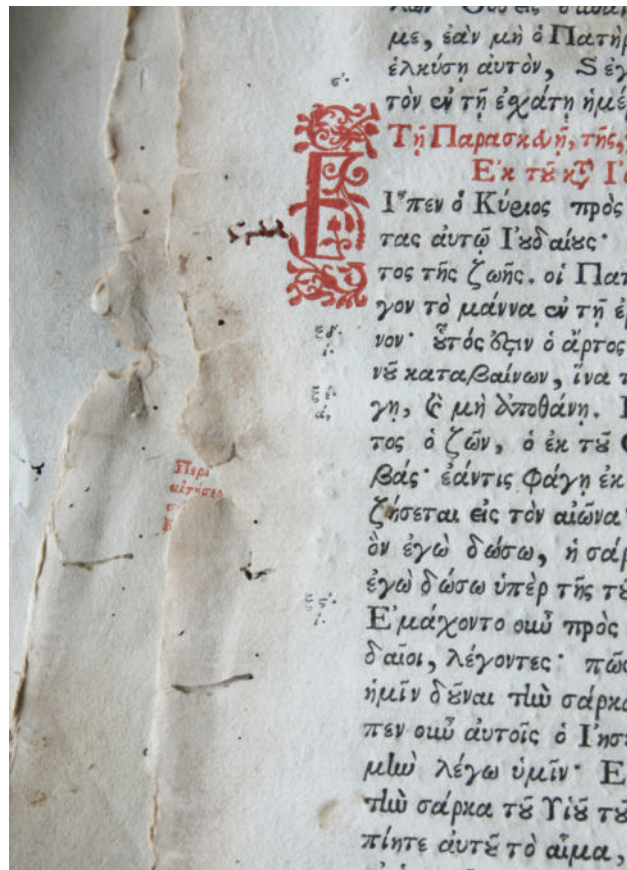 με, ἐὰν μὴ ὁ Πατὴρ
ἑλκύσῃ αὐτὸν, ϗ ἐγ
τὸν ἐν τῇ ἐχάτῃ ἡμέ
Τῇ Παρασκευῇ, τῆς,
Ἐκ τȣ͂ κτ͂ Ἰ
ΕΙ῏πεν ὁ Κύριος πρὸς
τας αὐτῷ Ἰȣδαίȣς·
τος τῆς ζωῆς. οἱ Πατ
γον τὸ μάννα ἐν τῇ ἐ
νον· ȣ῟τός ἐςιν ὁ ἄρτος
νȣ͂ καταβαίνων, ἵνα τ
γῃ, ϗ μὴ ἀποθάνῃ.
τος ὁ ζῶν, ὁ ἐκ τȣ͂
βάς· ἐάντις φάγῃ ἐκ
ζήσεται εἰς τὸν αἰῶνα
ὃν ἐγὼ δώσω, ἡ σάρ
ἐγὼ δώσω ὑπὲρ τῆς τȣ͂
Ἐμάχοντο οὖν πρὸς
δαῖοι, λέγοντες· πῶς
ἡμῖν δȣ͂ναι τὴν σάρκα
πεν οὖν αὐτοῖς ὁ Ἰησ
μὴν λέγω ὑμῖν· Ἐ
τὴν σάρκα τȣ͂ Υἱȣ͂ τȣ͂
πίητε αὐτȣ͂ τὸ αἷμα,
Περὶ
αἰτήσεω